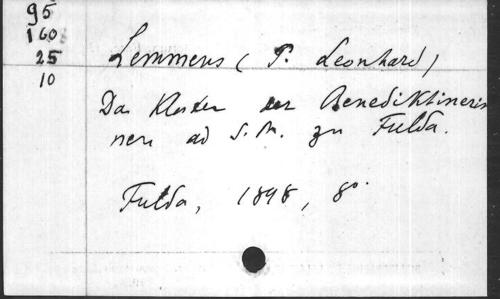 95
160
25
10
Lemmens (P. Leonhard)
Das Kloster der Benediktinerin
nen ad S. M. zu Fulda.
Fulda, 1898, 8°.